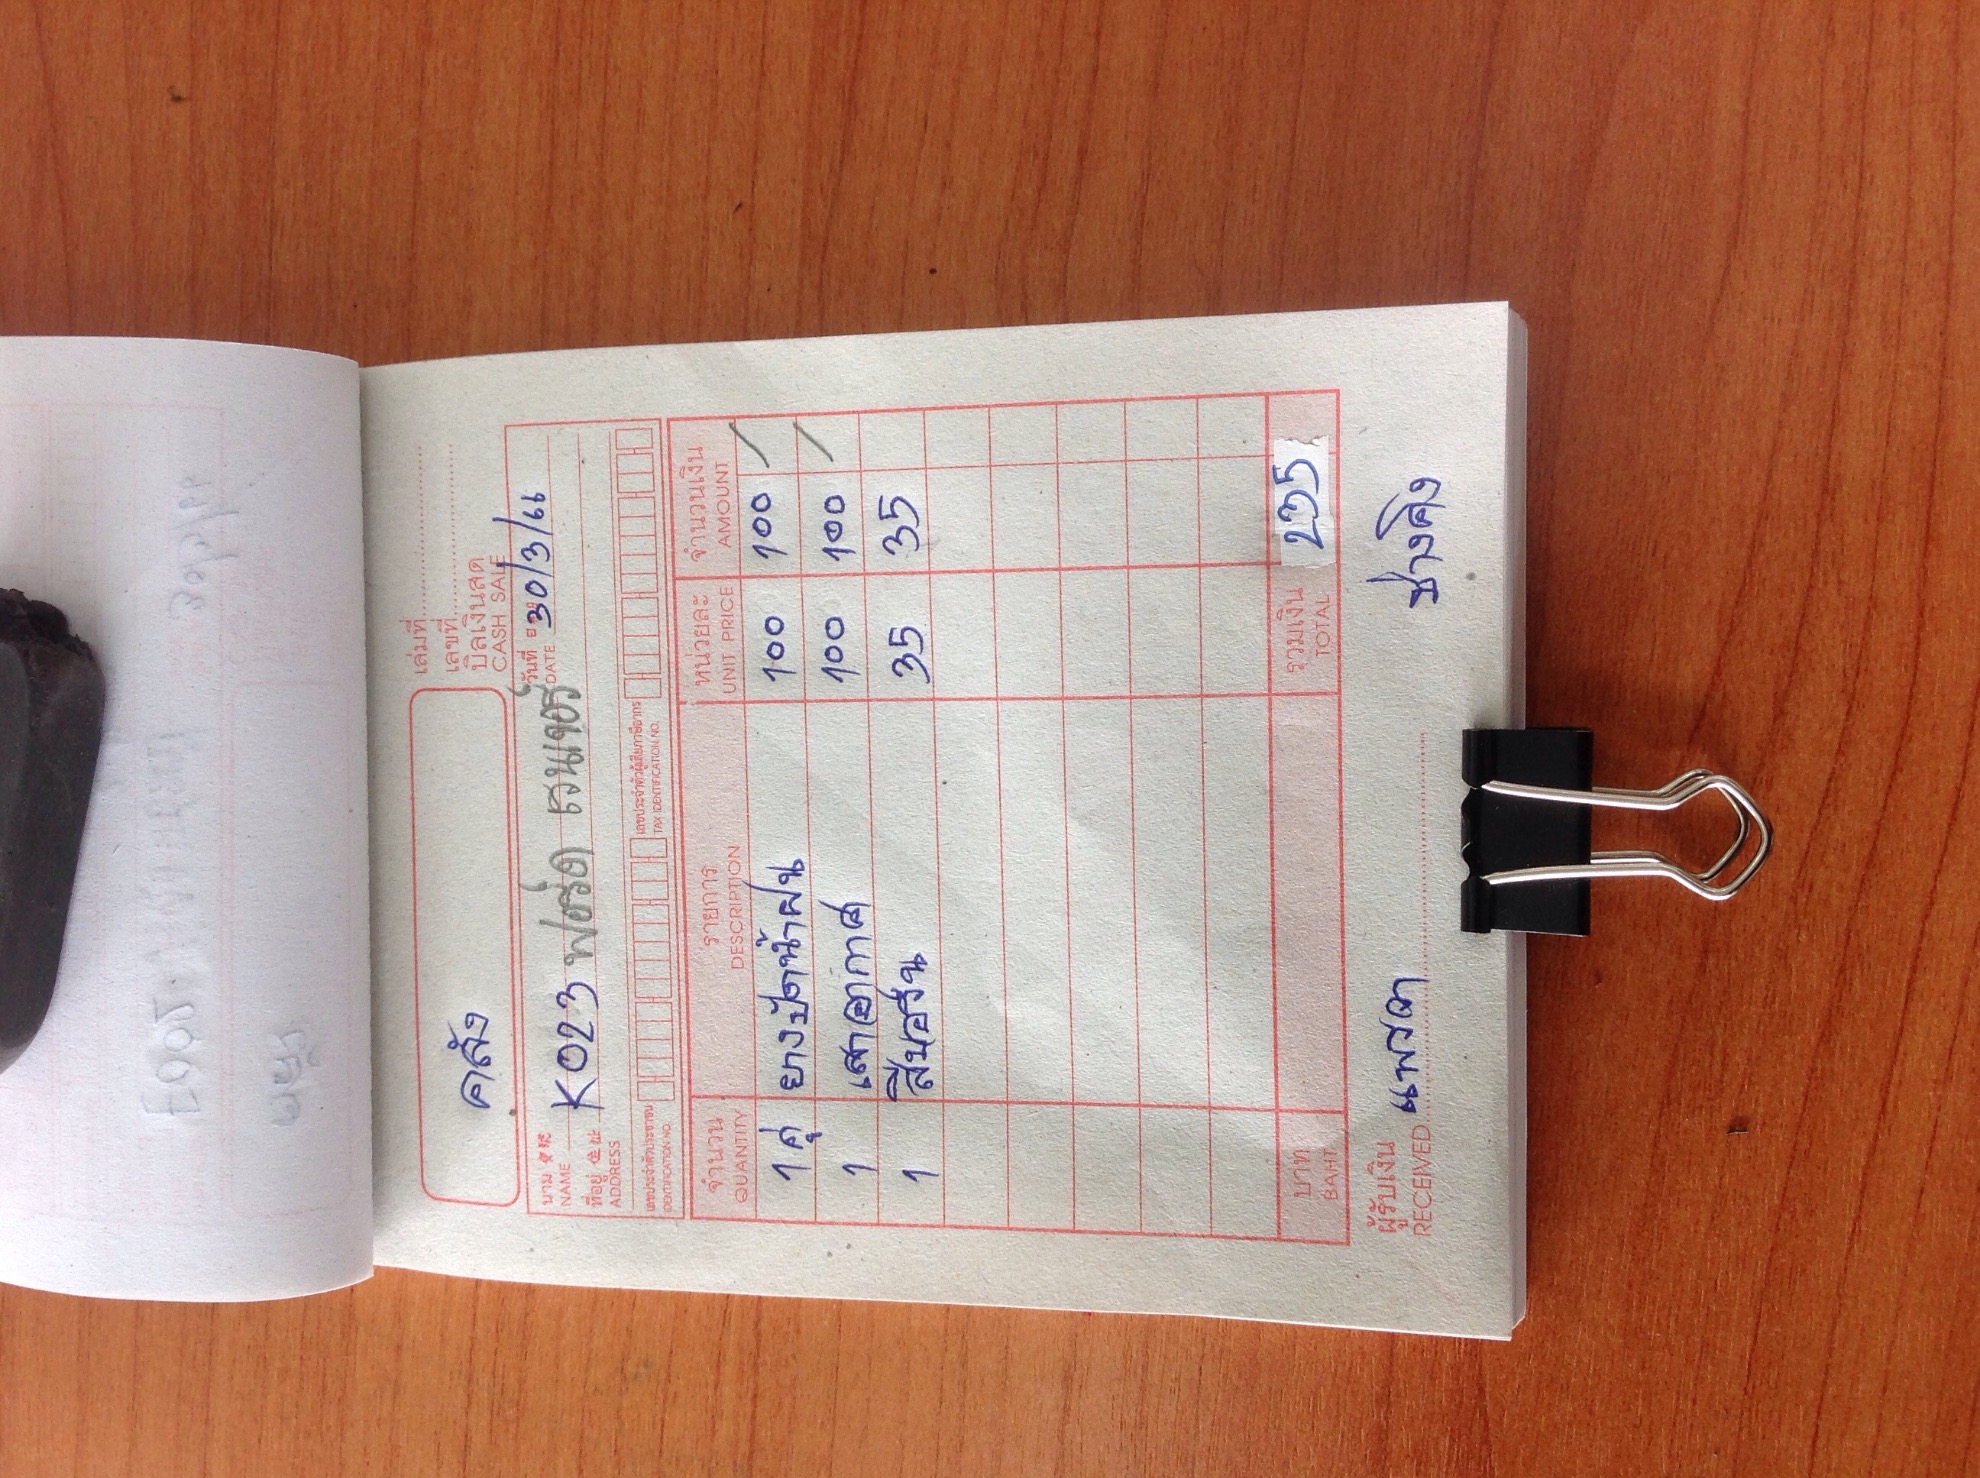 เล่มที่
เลขที่
คลัง
บิลเงินสด
CASH SALE
นาม
NAME
K023 ฟอร์ด
วันที่
DATE
30/3/66
ที่อยู่
ADDRESS
เลขประจำตัวประชาชน
IDENTIFICATION NO.
เลขประจำตัวผู้เสียภาษีอากร
TAX IDENTIFICATION NO.
จำนวน รายการ หน่วยละ จำนวนเงิน
QUANTITY DESCRIPTION UNIT PRICE AMOUNT
1 คู่ ยางปัดน้ำฝน 100 100 /
1 เสาอากาศ 100 100 /
1 35 35
บาท รวมเงิน 235
BAHT TOTAL
ผู้รับเงิน
RECEIVED แพรดา